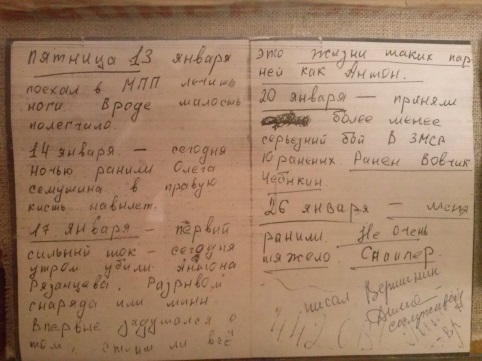 пятница 13 января
поехал в МПП лечить
ноги. Вроде малость
полегчило.
14 января. — сегодня
ночью ранили Олега
семушина в правую
кисть навылет.
17 января — первый
сильный шок — сегодня
утром убили Антона
Рязанцева. Разрывом
снаряда или мины
Впервые задумался о
том, стоит ли всё
это жизни таких пар
ней как Антон.
20 января — приняли
более менее
серьезный бой в 3МСР
10 раненых. Ранен Вовчик
Чебыкин
26 января — меня
ранили. Не очень
тяжело. Снайпер.
писал Вершинин
Дима
сослуживец